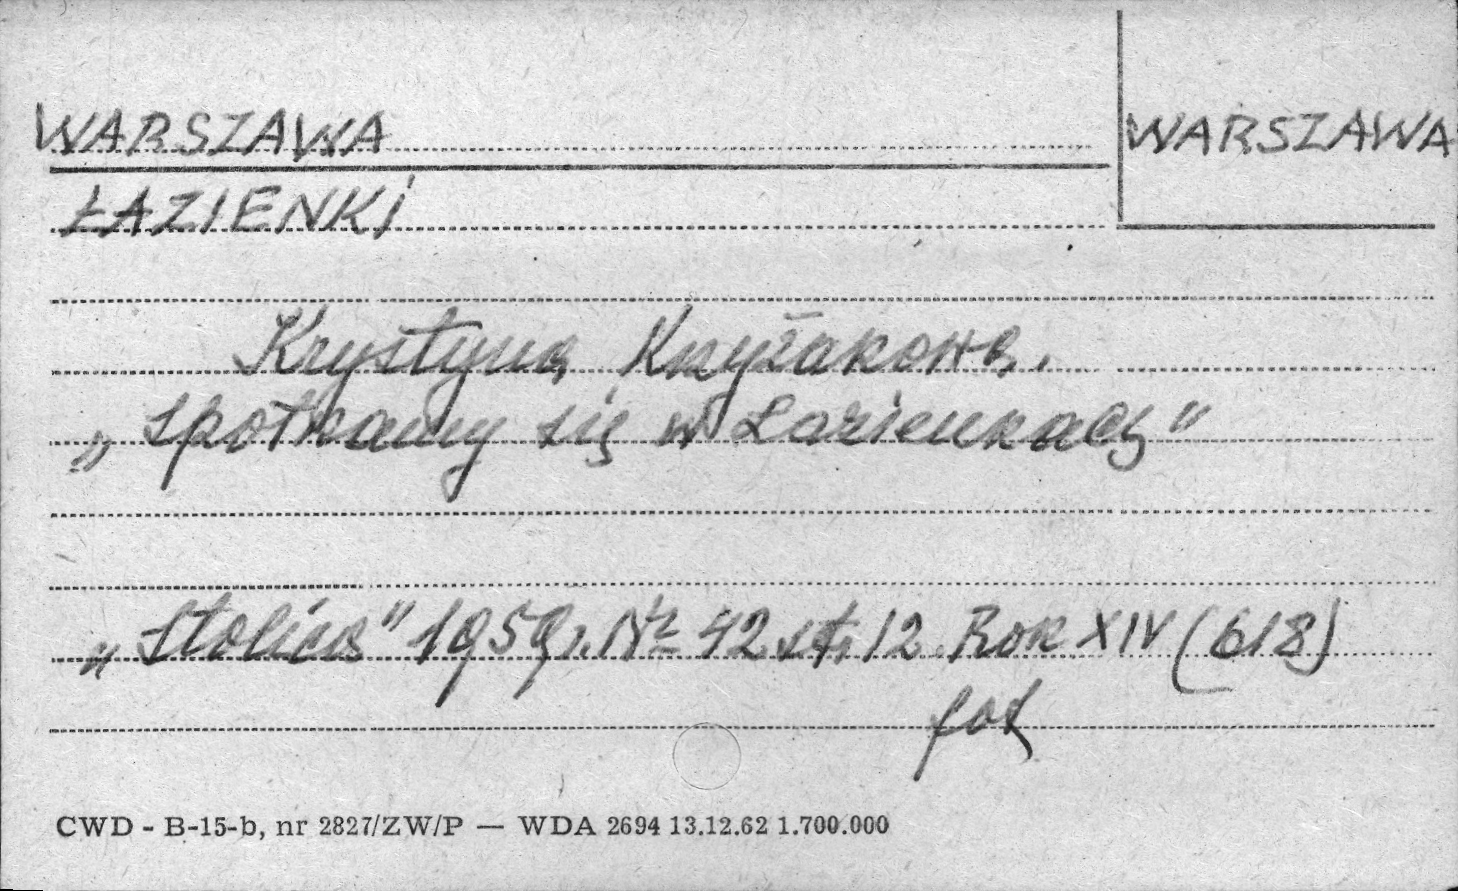 WARSZAWA
WARSZAWA
ŁAZIENKI
Krystyna Krzyżakowa.
„Spotkamy się w Łazienkach"
„Stolica" 1959 r. Nr 42 str. 12 Rok XIV (618)
fot
CWD - B-15-b, nr 2827/ZW/P — WDA 2694 13.12.62 1.700.000